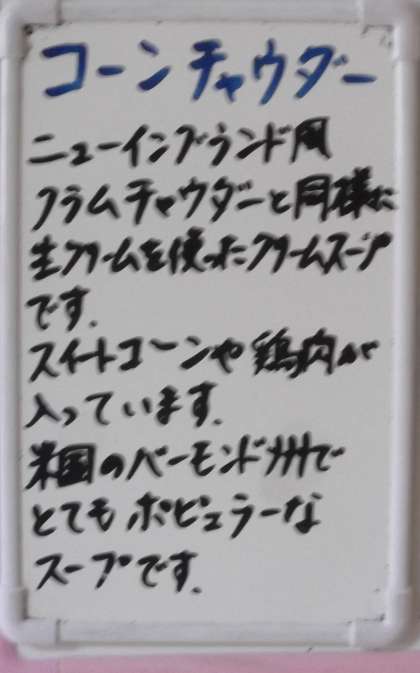 コーンチャウダー
ニューイングランド風
クラムチャウダーと同様に
生クリームを使ったクリームスープ
です.
スイートコーンや鶏肉が
入っています.
米国のバーモンド州で
とてもポピュラーな
スープです.